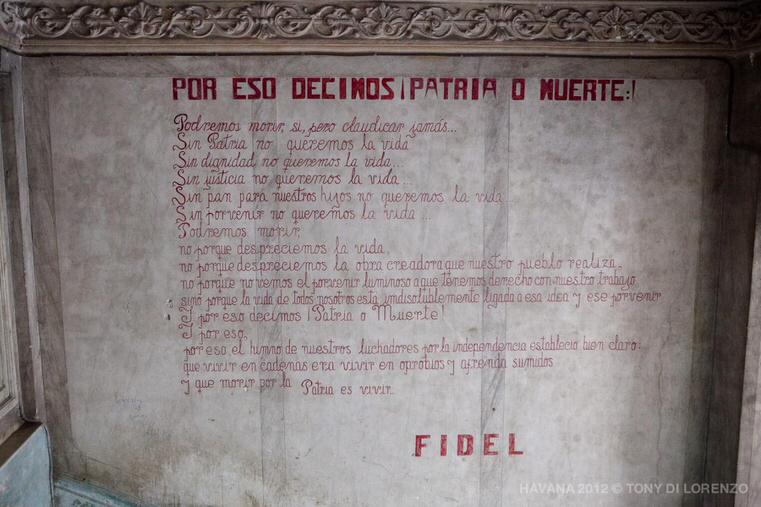 POR ESO DECIMOS ¡PATRIA O MUERTE:!
Podremos morir, si, pero claudicar jamás...
Sin Patria no queremos la vida
Sin dignidad no queremos la vida...
Sin justicia no queremos la vida...
Sin pan para nuestros hijos no queremos la vida...
Sin porvenir no queremos la vida...
Podremos morir,
no porque despreciemos la vida,
no porque despreciemos la obra creadora que nuestro pueblo realiza,
no porque no vemos el porvenir luminoso a que tenemos derecho con nuestro trabajo
sino porque la vida de todos nosotros está indisolublemente ligada a esa idea y ese porvenir
Y por eso decimos ¡Patria o Muerte!
Y por eso,
por eso el himno de nuestros luchadores por la independencia estableció bien claro:
que vivir en cadenas era vivir en oprobios y afrenda sumidos
y que morir por la Patria es vivir..
FIDEL
HAVANA 2012 © TONY DI LORENZO